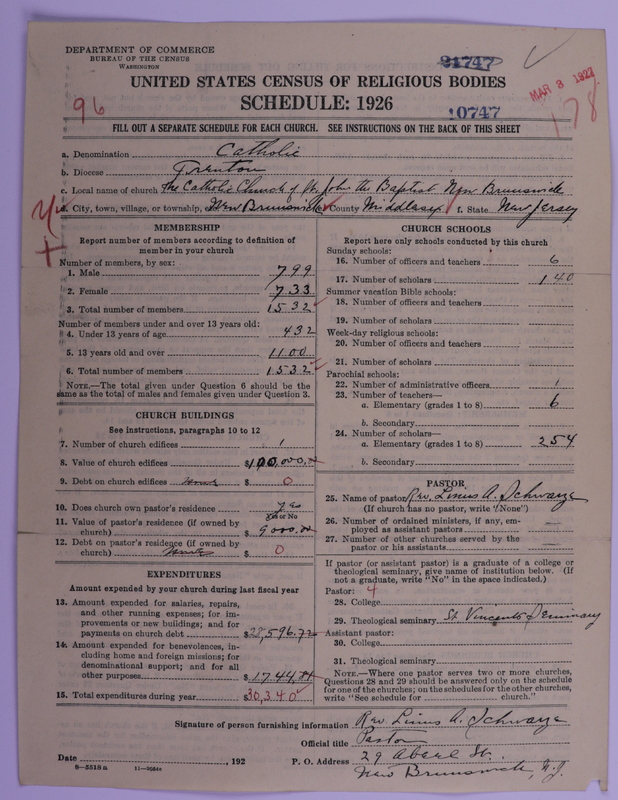 DEPARTMENT OF COMMERCE
BUREAU OF THE CENSUS
WASHINGTON
21747
MAR 3 1927
UNITED STATES CENSUS OF RELIGIOUS BODIES
SCHEDULE: 1926
96
10747
178
FILL OUT A SEPARATE SCHEDULE FOR EACH CHURCH. SEE INSTRUCTIONS ON THE BACK OF THIS SHEET
a. Denomination Catholic
b. Diocese Trenton
c. Local name of church The Catholic Church of St. John the Baptist New Brunswick
d. City, town, village, or township, New Brunswick County Middlesex f. State New Jersey
MEMBERSHIP
Report number of members according to definition of
member in your church
Number of members, by sex:
1. Male 799
2. Female 733
3. Total number of members 1532
Number of members under and over 13 years old:
4. Under 13 years of age 432
5. 13 years old and over 1100
6. Total number of members 1532
NOTE.—The total given under Question 6 should be the
same as the total of males and females given under Question 3.
CHURCH BUILDINGS
See instructions, paragraphs 10 to 12
7. Number of church edifices 1
8. Value of church edifices $100,000.00
9. Debt on church edifices $ 0
10. Does church own pastor's residence yes
Yes or No
11. Value of pastor's residence (if owned by
church) $ 9000.00
12. Debt on pastor's residence (if owned by
church) $ 0
EXPENDITURES
Amount expended by your church during last fiscal year
13. Amount expended for salaries, repairs,
and other running expenses; for im-
provements or new buildings; and for
payments on church debt $28,596.72
14. Amount expended for benevolences, in-
cluding home and foreign missions; for
denominational support; and for all
other purposes $1744.00
15. Total expenditures during year $30,340
CHURCH SCHOOLS
Report here only schools conducted by this church
Sunday schools:
16. Number of officers and teachers 6
17. Number of scholars 140
Summer vacation Bible schools:
18. Number of officers and teachers
19. Number of scholars
Week-day religious schools:
20. Number of officers and teachers
21. Number of scholars
Parochial schools:
22. Number of administrative officers 1
23. Number of teachers—
a. Elementary (grades 1 to 8) 6
b. Secondary
24. Number of scholars—
a. Elementary (grades 1 to 8) 254
b. Secondary
PASTOR
25. Name of pastor Rev. Linus A. Schwarze
(If church has no pastor, write "None")
26. Number of ordained ministers, if any, em-
ployed as assistant pastors
27. Number of other churches served by the
pastor or his assistants
If pastor (or assistant pastor) is a graduate of a college or
theological seminary, give name of institution below. (If
not a graduate, write "No" in the space indicated.)
Pastor: 4
28. College
29. Theological seminary St Vincents Seminary
Assistant pastor:
30. College
31. Theological seminary
NOTE.—Where one pastor serves two or more churches,
Questions 28 and 29 should be answered only on the schedule
for one of the churches; on the schedules for the other churches,
write "See schedule for church."
Signature of person furnishing information Rev. Linus A. Schwarze
Official title Pastor
Date , 192 P. O. Address 29 Abeel St.
8—5518a 11—
New Brunswick, N.J.